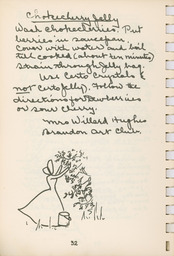 Chokecherry Jelly
Wash chokecherries. Put
berries in saucepan
cover with water and boil
till cooked (about ten minutes)
strain through jelly bag.
Use Certo Crystals (
not Certo Jelly). Follow the
directions for
or sour cherry.
Mrs Willard Hughes
Brandon Art Club
52